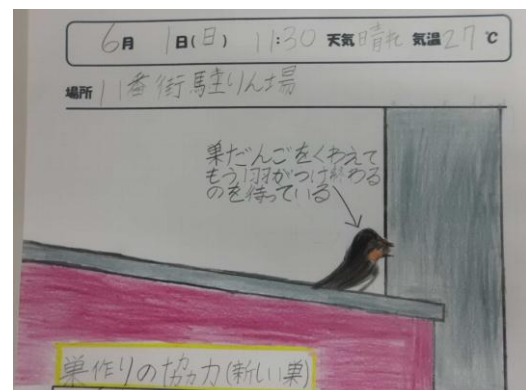 6月 1日(日) 11:30 天気 晴れ 気温 27℃
場所 11番街駐りん場
巣だんごをくわえて
もう1羽がつけ終わる
のを待っている
巣作りの協力(新しい巣)